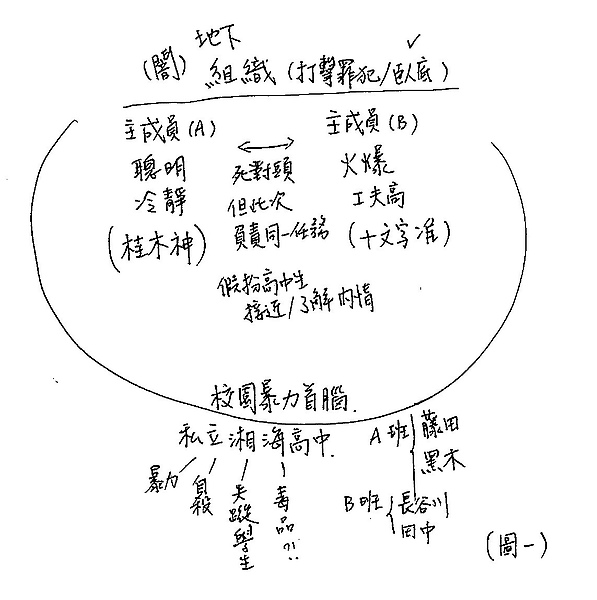 地下
(闇) 組織 (打擊罪犯/臥底)
主成員(A) 主成員(B)
聰明 死對頭 火爆
冷靜 但此次 工夫高
(桂木神) 負責同一任務 (十文字准)
假扮高中生
接近/了解內情
校園暴力首腦.
私立湘海高中.
暴力
自殺
失蹤學生
毒品?!
A班 藤田
黑木
B班 長谷川
田中
(圖一)